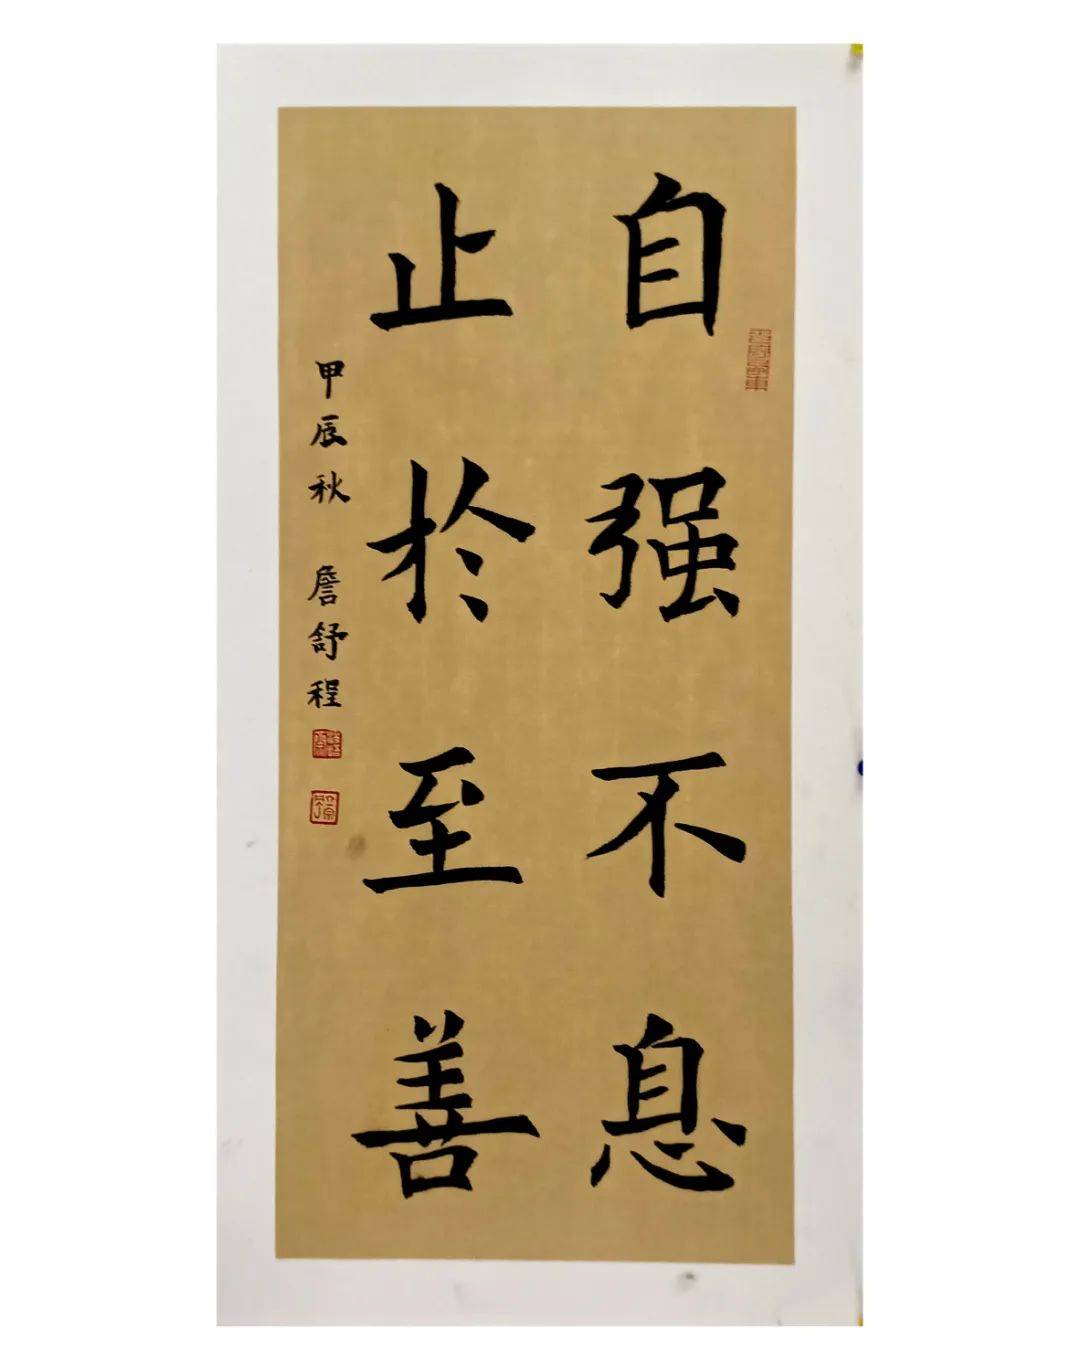 自强不息
止於至善
甲辰秋 詹舒程